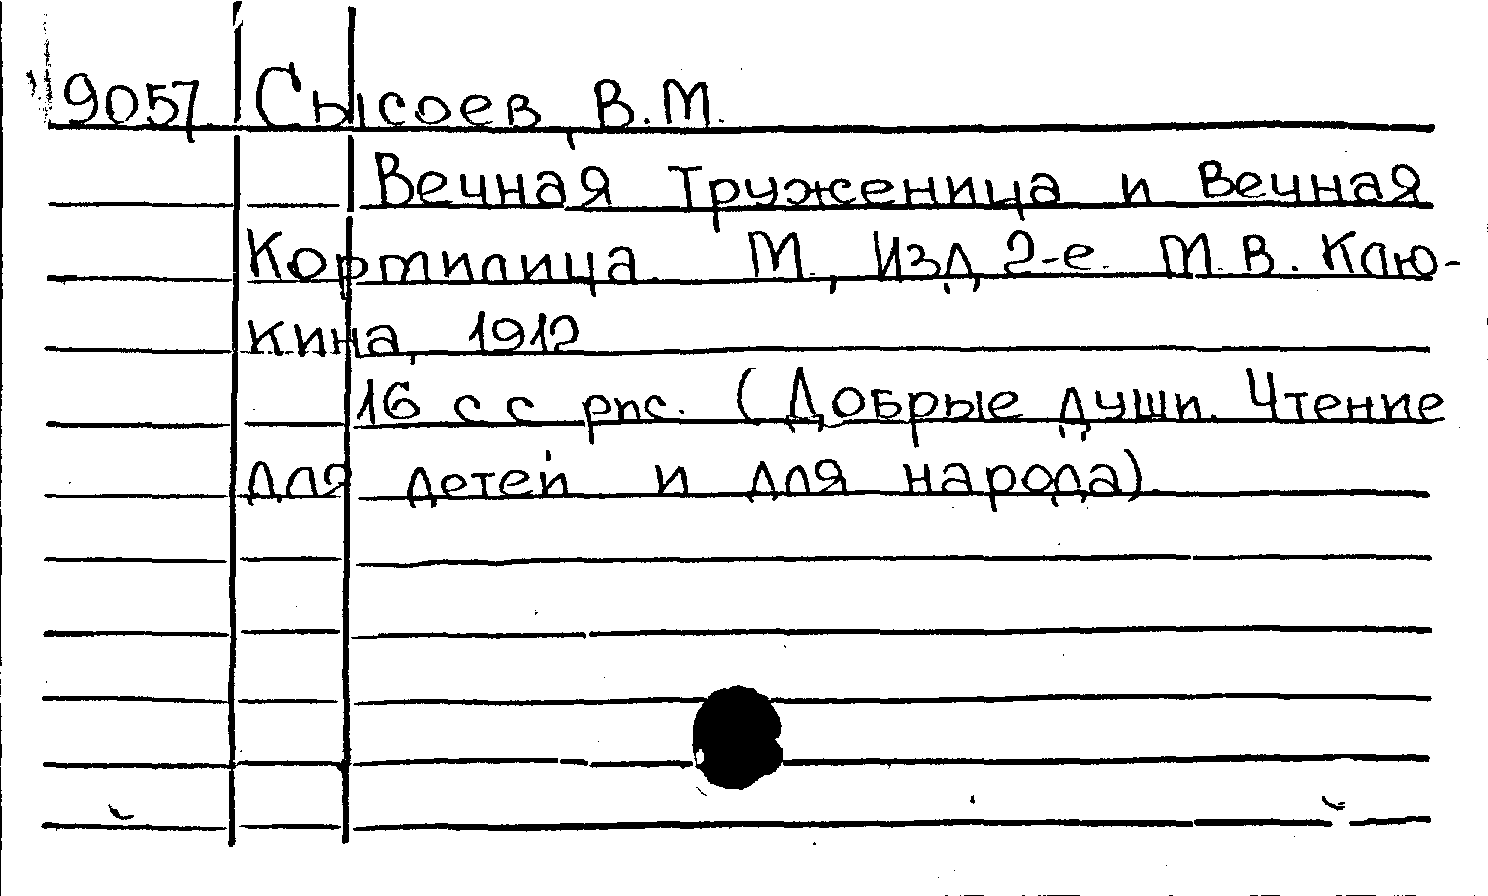 9057 Сысоев, В.М.
Вечная труженица и вечная
Кормилица. М., Изд. 2-е. М.В. Клю-
кина, 1912
16 с с рис. (Добрые души. Чтение
для детей и для народа)